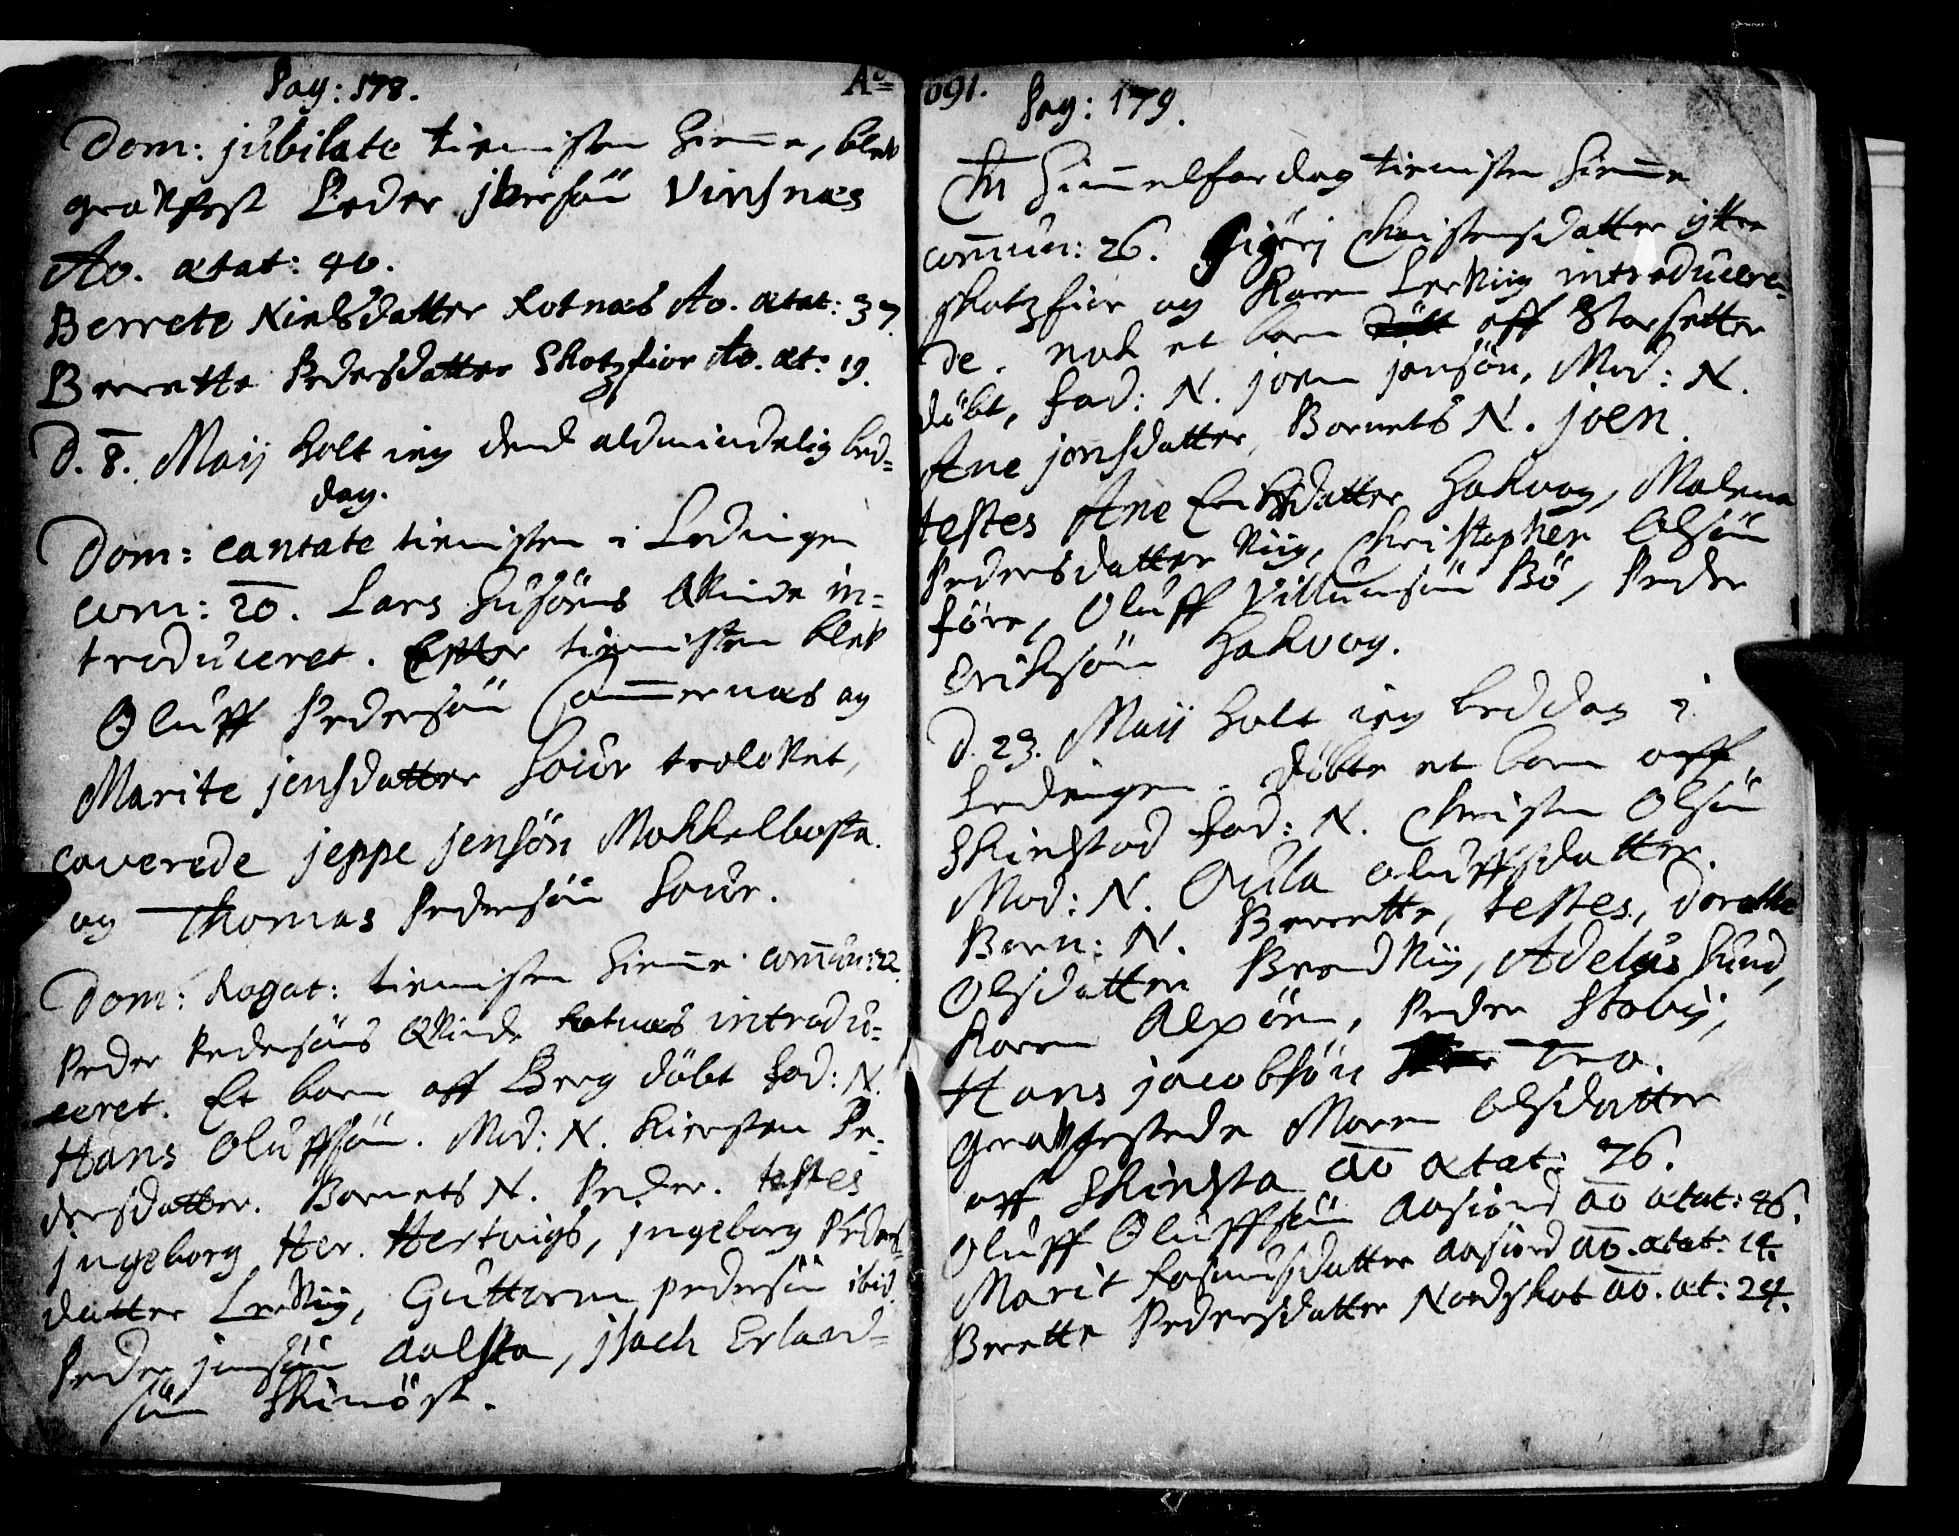 Pag: 178.
Dom: jubilate tienisten hieme, blef
graffest Peder jversøn Vinsnæs
Ao. ætat: 40.
Berrete Nielsdatter Kotnæs Ao. ætat: 37.
Berrette Pedersdatter Skotzfior Ao. æt: 19.
D. 8. Maij holt ieg dend aldmindelig bed=
dag.
Dom: cantate tienisten i Lødingen
com: 20. Lars Husøens Qvinde in=
troduceret. Efter tienisten blef
Oluff Pedersøn Commernæs og
Marite jensdatter troloket,
caverede jeppe jensøn Mokkelbosta.
og Thomas Pedersøn
Dom: Rogat: tienisten hieme. commun: 22.
Peder Pedersøns Qvinde Kotnæs introdu=
ceret. Et barn aff Berg døbt fad: N.
Hans Oluffsøn. Mod: N. Kiersten Pe=
dersdatter. Barnets N. Peder. testes
jngeborg Her. Hertvigs, jngeborg Peders=
datter Lervig, Guttorm pedersøn ibid.
Peder jensøn Aalsta, jsach Erland=
søn
Ao 1691.
Pag: 179.
Chr Himelfardag tienisten hieme
commun: 26. Sigrj Christensdatter ytter
skotzfior og Karen Lervig introducere=
de. nok et barn aff Storsetter
døbt, fad: N. joen jonsøn, Mod: N.
Ane jonsdatter, Barnets N. joen.
testes Ane Erichsdatter Hakvog, Malene
Pedersdatter Viig, Christopher Olsøn
føre, Oluff Villumsøn Bø, Peder
Eriksøn Hakvog.
D. 23. Maij holt ieg beddag i
Lødingen. døbte et barn aff
Skielstad fad: N. Christen Olsøn
Mod: N. Oula oluffsdatter.
Barn: N. Berrette, testes, dorothe
Olsdatter Brendviig, Adelus sund,
Karen Peder Stoby,
Hans jacobsøn Trø.
graffestede Maren Olsdatter
aff Skielsta ao ætat: 76.
Oluff Oluffsøn Aasiord ao ætat: 46.
Marit Rasmusdatter Aasiord ao. ætat: 14.
Berette Pedersdatter Nordskot ao. æt: 24.